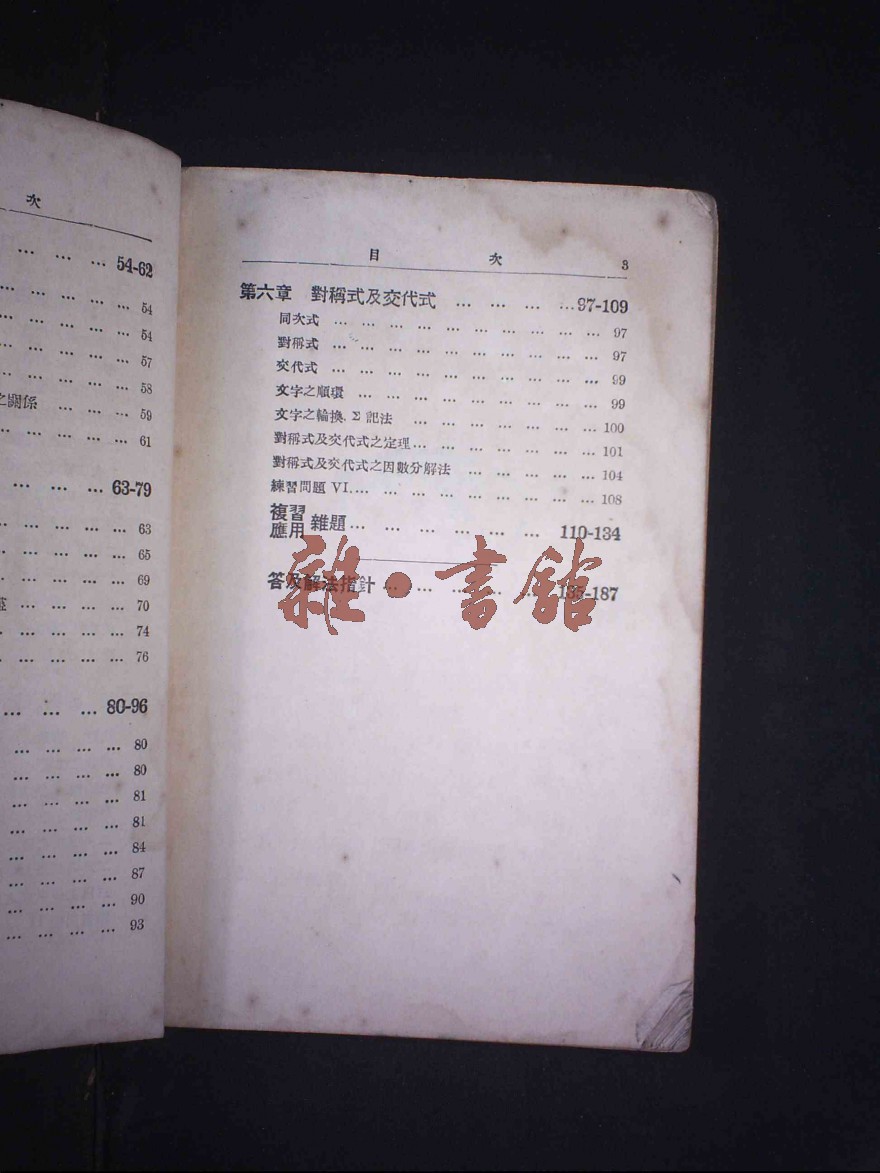 次
… … … 54-62
… … … … … 54
… … … … … 54
… … … … … 57
… … … … … 58
之關係 … … … 59
… … … … … 61
… … … … 63-79
… … … … … 63
… … … … … 65
… … … … … 69
… … … … 70
… … … … … 74
… … … … … 76
… … … … 80-96
… … … … … 80
… … … … … 80
… … … … … 81
… … … … … 81
… … … … … 84
… … … … … 87
… … … … … 90
… … … … … 93
目 次 3
第六章 對稱式及交代式 … … … …97-109
同次式 … … … … … … … … … … 97
對稱式 … … … … … … … … … … 97
交代式 … … … … … … … … … … 99
文字之順環 … … … … … … … … … 99
文字之輪換. Σ 記法 … … … … … … … 100
對稱式及交代式之定理… … … … … … … 101
對稱式及交代式之因數分解法 … … … … … 104
練習問題 VI.… … … … … … … … … 108
複習應用 雜題… … … … … … 110-134
答及解法指針 … … … … … 135-187
雜·書館